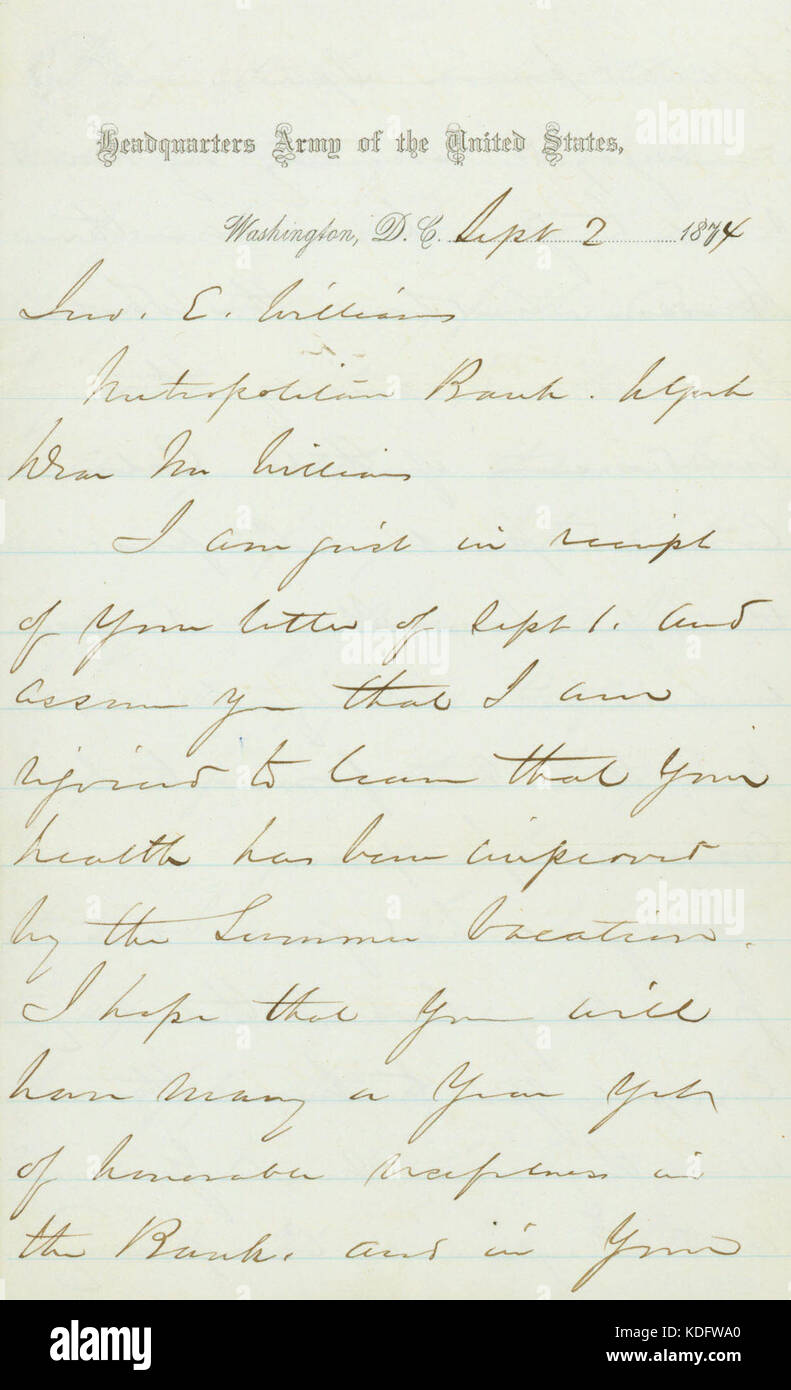 Headquarters Army of the United States,
Washington, D.C. Sept 2 1874
Jno. E. Williams
Metropolitan Bank. N York
Dear Mr Williams
I am just in receipt
of your letter of Sept 1. and
assure you that I am
rejoiced to learn that your
health has been improved
by the Summer Vacation.
I hope that you will
have many a year yet
of honorable usefulness in
the Bank. and in your
alamy
alamy
alamy
alamy
Image ID: KDFWA0
www.alamy.com